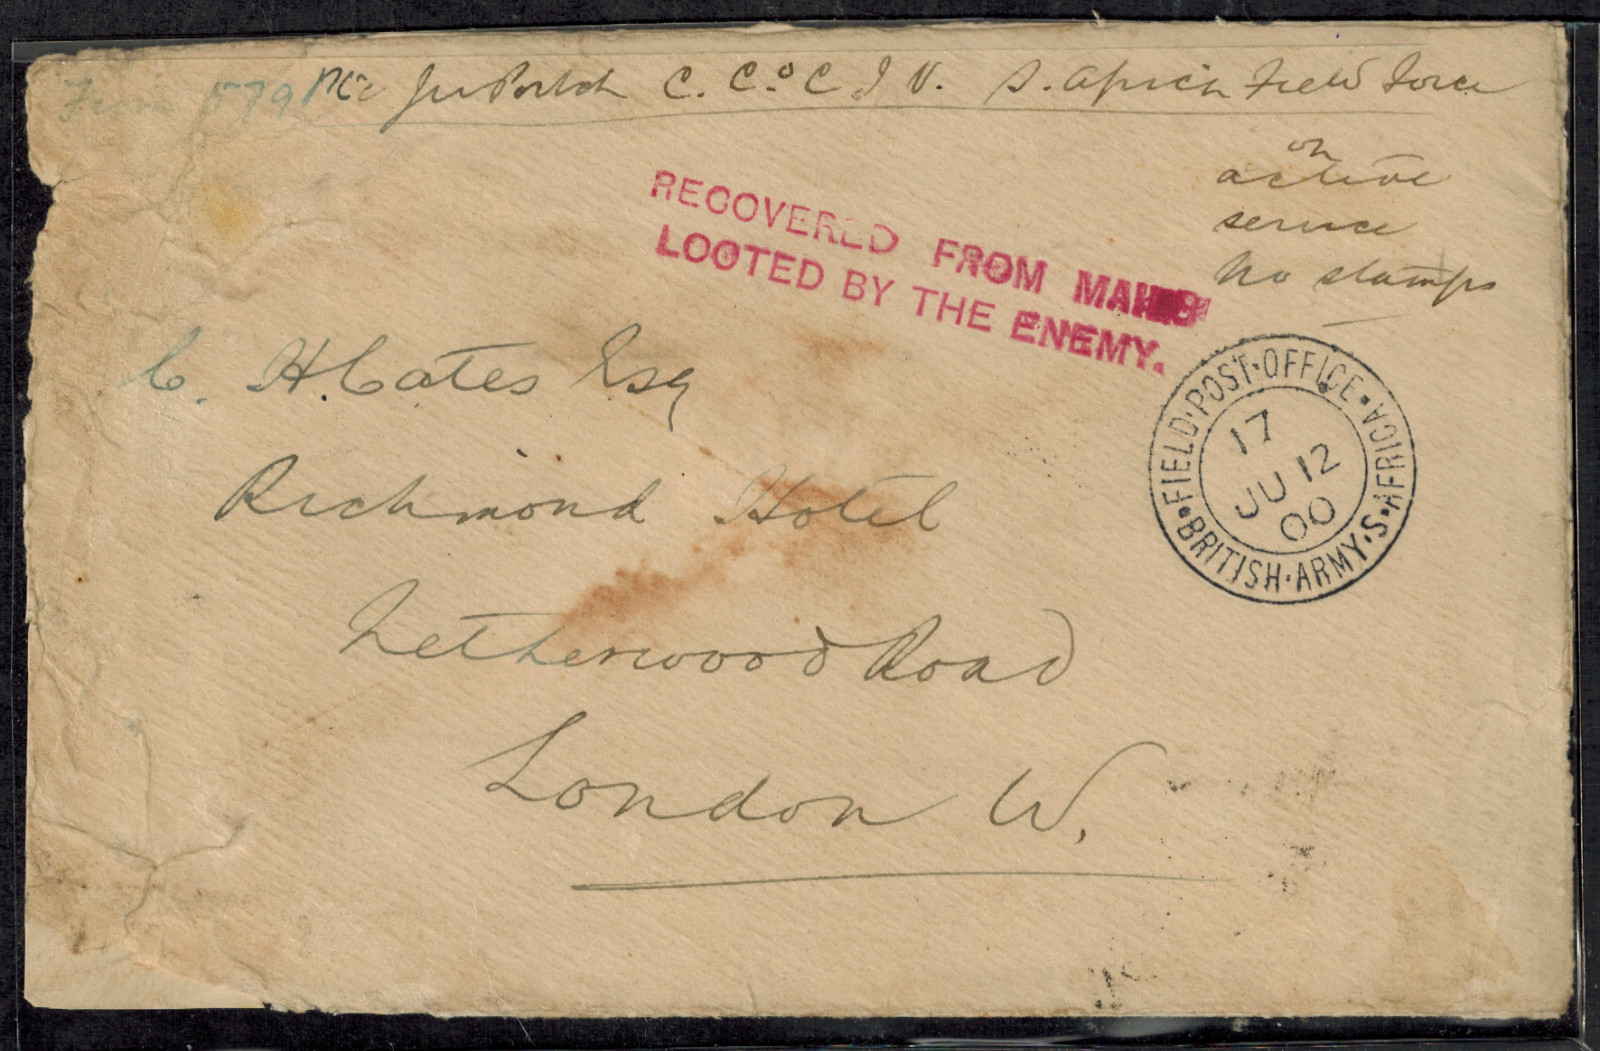 From 579 Pte J W Portch C. Co. C I V. S. African Field Force
on
active
service
No stamps
RECOVERED FROM MAILS
LOOTED BY THE ENEMY.
C. H. Cates Esq
Richmond Hotel
Netherwood Road
London W.
FIELD·POST·OFFICE·
BRITISH·ARMY·S·AFRICA
17
JU 12
00